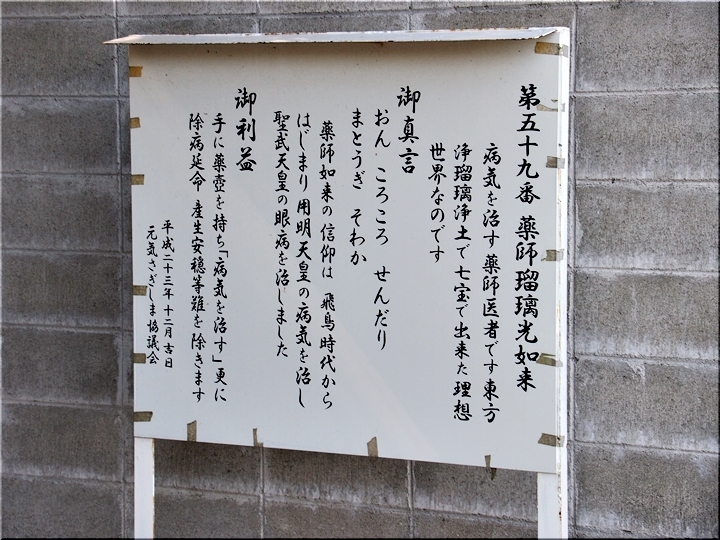 第五十九番 薬師瑠璃光如来
病気を治す薬師医者です東方
浄瑠璃浄土で七宝で出来た理想
世界なのです
御真言
おん ころころ せんだり
まとうぎ そわか
薬師如来の信仰は 飛鳥時代から
はじまり 用明天皇の病気を治し
聖武天皇の眼病を治しました
御利益
手に薬壺を持ち「病気を治す」更に
除病延命 産生安穏等難を除きます
平成二十三年十二月吉日
元気さぎしま協議会